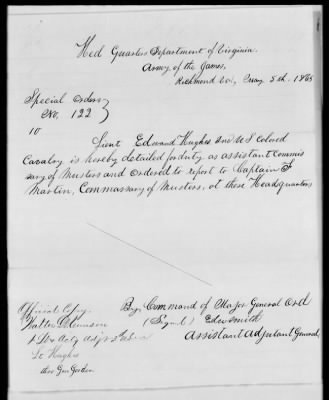 Hed Quarters Department of Virginia
Army of the James,
Richmond Va, May 5th, 1865
Special Orders
No, 122
10
Lieut Edward Hughes 2nd U S Colored
Cavalry is hereby detailed for duty as assistant Commis
sary of Musters and Ordered to report to Captain
Martin, Commassary of Musters, at these Headquarters
By Command of Major General Ord
Official Copy
(Signed) Edw Smith
Assistant Adjutant General,
Lt Hughes